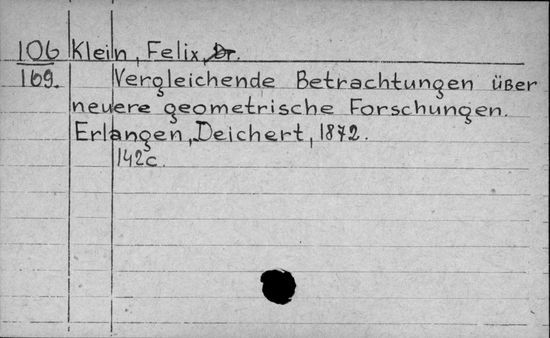 106 Klein, Felix, Dr.
169. Vergleichende Betrachtungen über
neuere geometrische Forschungen.
Erlangen, Deichert, 1872.
142c.